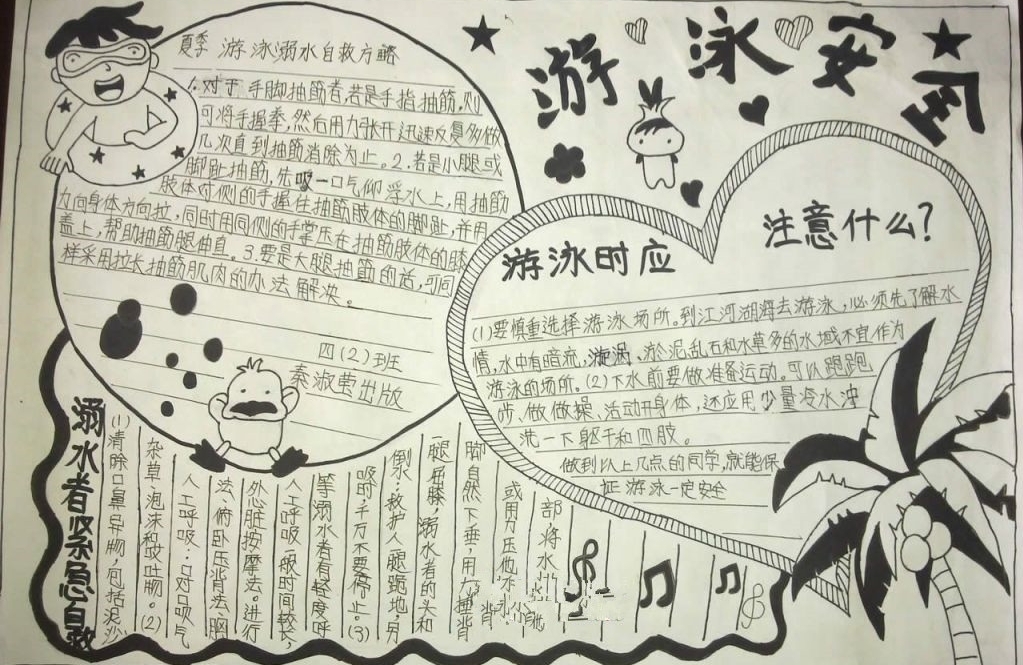 游泳安全
夏季 游泳溺水自救方略
1.对于手脚抽筋者,若是手指抽筋,则
可将手握拳,然后用力张开,迅速反复多做
几次直到抽筋消除为止。2.若是小腿或
脚趾抽筋,先吸一口气仰浮水上,用抽筋
肢体对侧的手握住抽筋肢体的脚趾,并用
力向身体方向拉,同时用同侧的手掌压在抽筋肢体的膝
盖上,帮助抽筋腿伸直。3.要是大腿抽筋的话,可同
样采用拉长抽筋肌肉的办法解决。
四(2)班
秦淑萤出版
游泳时应
注意什么?
(1)要慎重选择游泳场所。到江河湖海去游泳,必须先了解水
情,水中有暗流,漩涡、淤泥、乱石和水草多的水域不宜作为
游泳的场所。(2)下水前要做准备运动。可以跑跑
步、做做操,活动开身体,还应用少量冷水冲
洗一下躯干和四肢。
做到以上几点的同学,就能保
证游泳一定安全
溺水者紧急自救
(1)清除口鼻异物,包括泥沙
杂草、泡沫和哎吐物。(2)
人工呼吸:口对口吹气
法、俯卧压背法、胸
然心脏按摩法。进行
人工呼吸一般时间较长,
等溺水者有轻度呼
吸时,千万不要停止。(3)
倒水:救护人腿跪地,另
腿屈膝,溺水者的头和
脚自然下垂,用力撞背
或用力压他
部将水